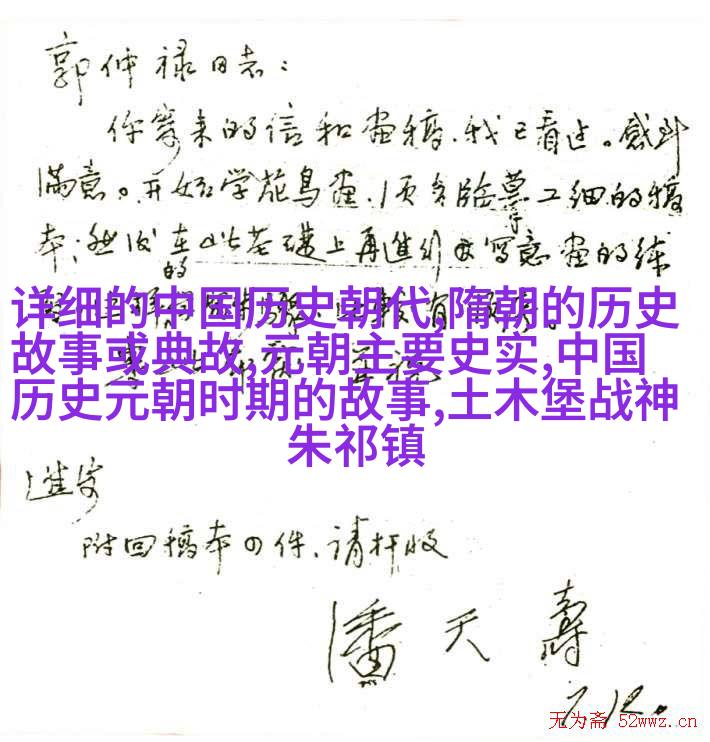 郭仲禄同志：
你寄来的信和画稿，我已看过。感到
满意。开始学花鸟画，须多临摹工细的稿
本；然后在此基础上再进行写意画的练
的
详细的中国历史朝代,隋朝的历史
故事或典故,元朝主要史实,中国
历史元朝时期的故事,土木堡战神
朱祁镇
进安
附回稿本四件、请检收
潘天寿
7.12.
无为斋 52wwz.cn